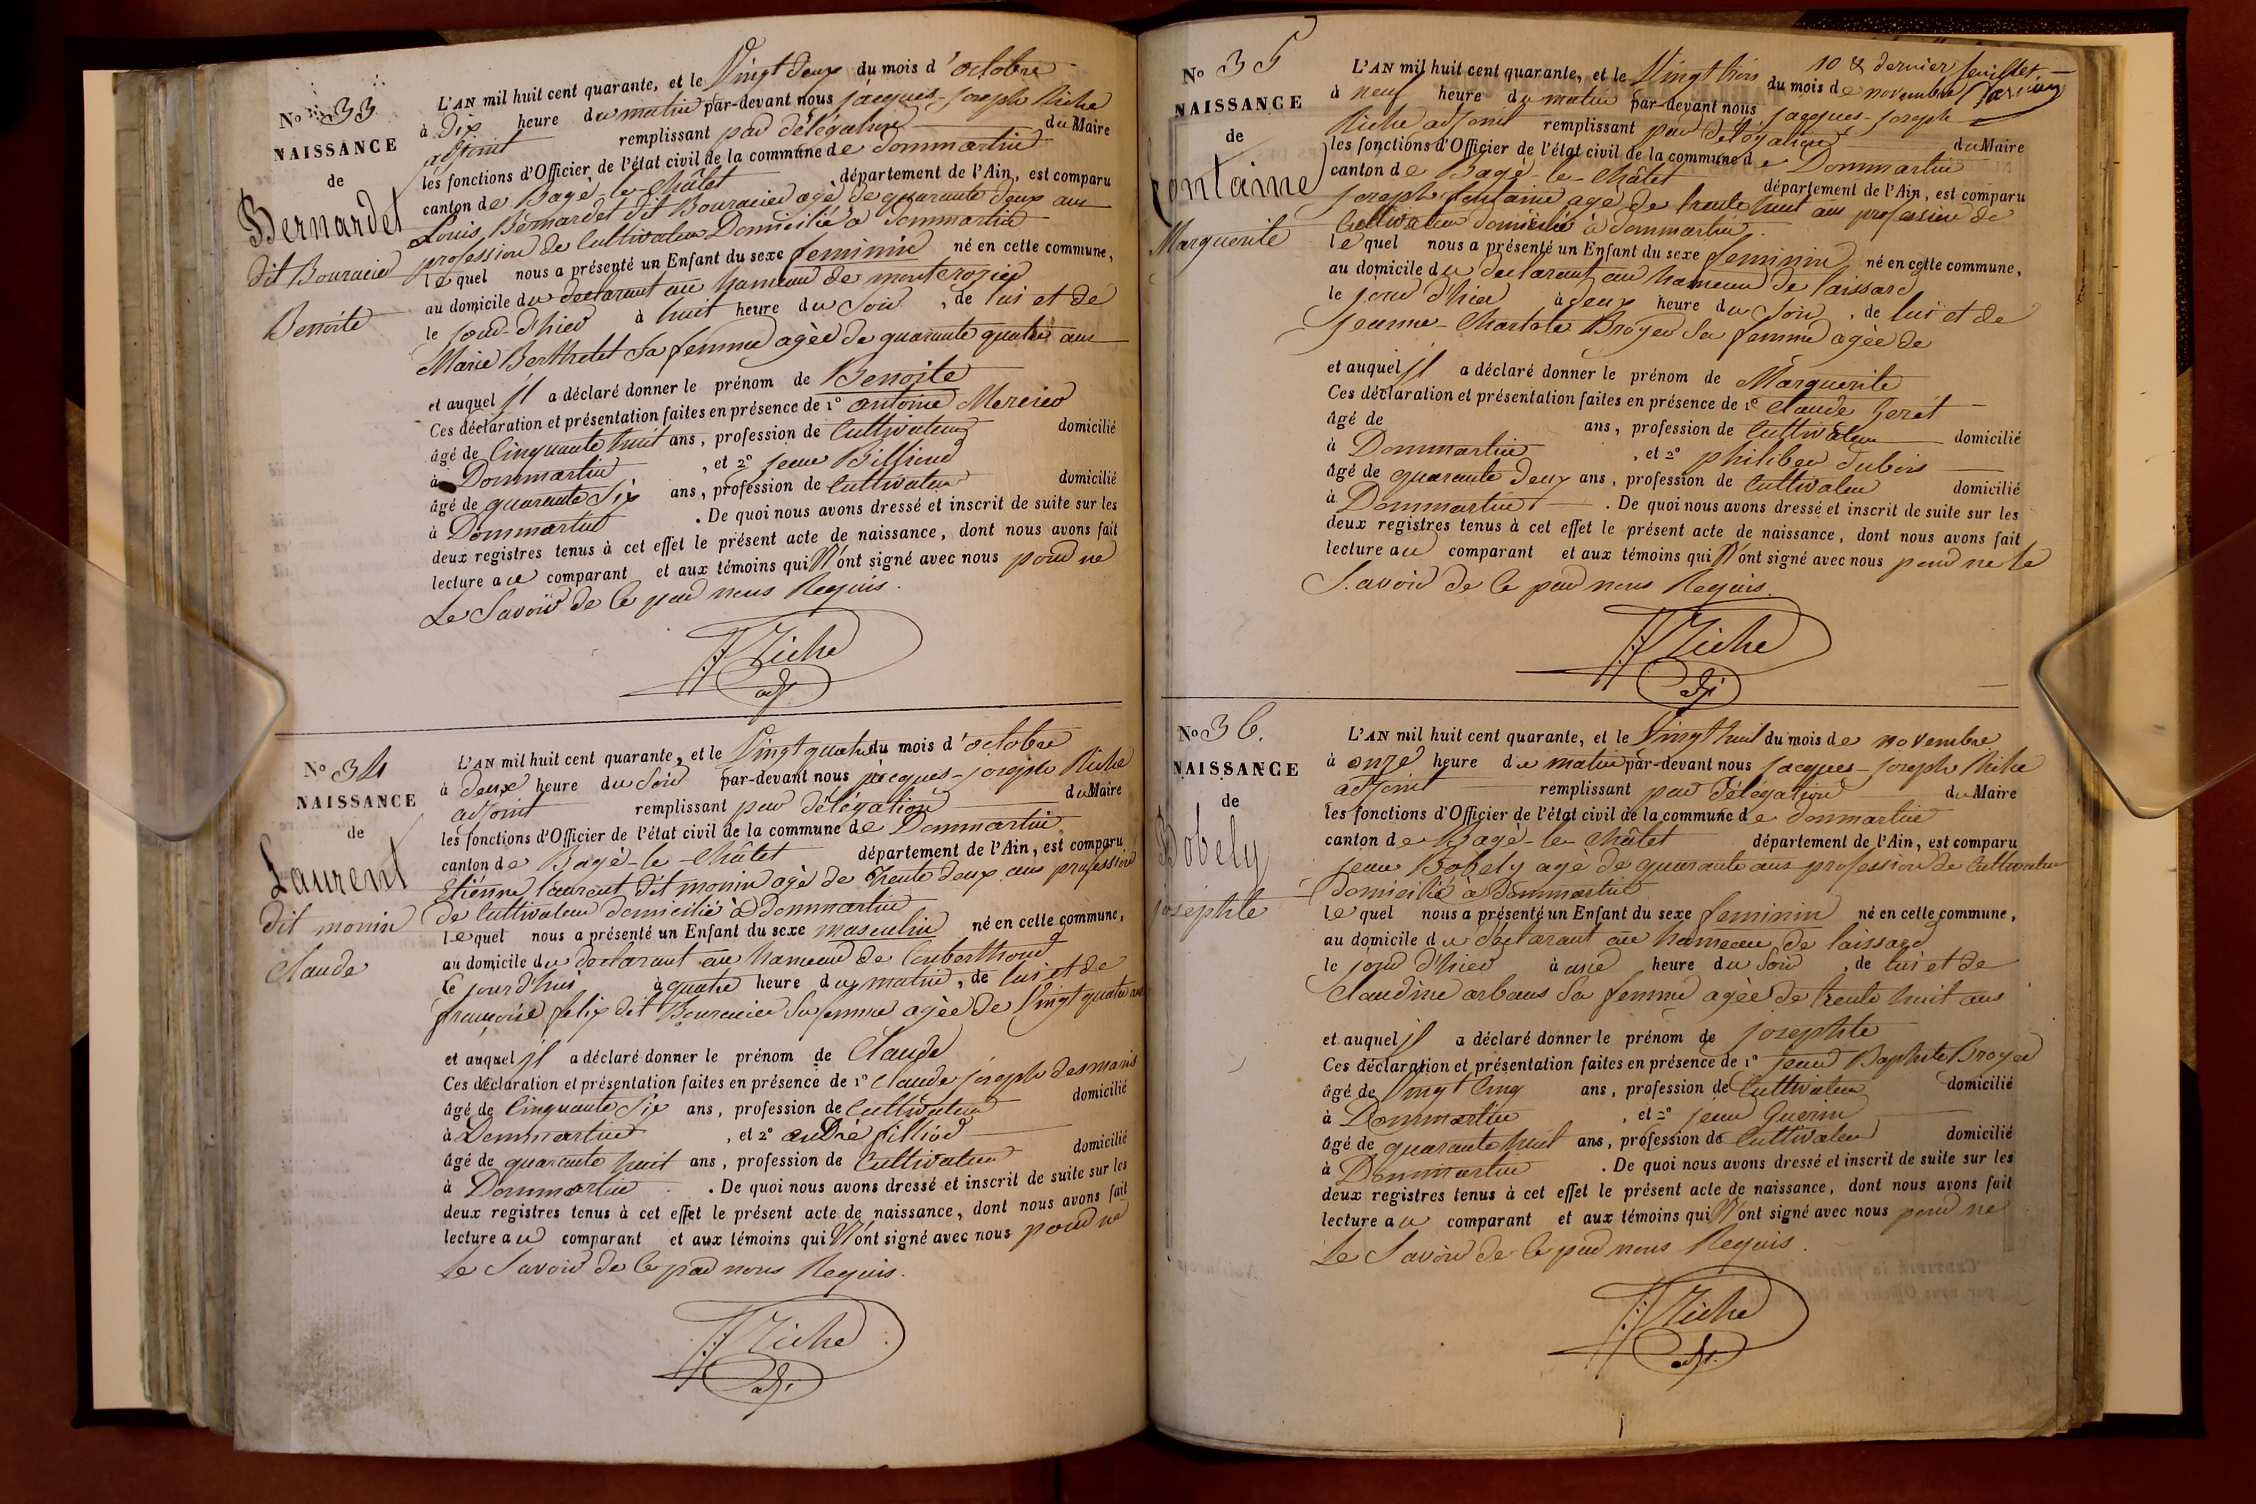 N° 33
NAISSANCE
de
Bernardet
dit Bouracier
Benoite
L'AN mil huit cent quarante, et le Vingt deux du mois d'octobre
à Dix heure du matin par-devant nous jacques-joseph Riche
adjoint remplissant par délégation du Maire
les fonctions d'Officier de l'état civil de la commune de Dommartin
canton de Bagé-le-Châtel département de l'Ain, est comparu
Louis Bernardet dit Bouracier agé de quarante deux ans
profession de Cultivateur Domicilié à Dommartin
lequel nous a présenté un Enfant du sexe feminin né en cette commune,
au domicile du declarant au hameau de monterozier
le jour d'hier à huit heure du Soir, de lui et de
Marie Berthelet Sa femme agée de quarante quatre ans
et auquel il a déclaré donner le prénom de Benoite
Ces déclaration et présentation faites en présence de 1° antoine Mercier
âgé de Cinquante huit ans, profession de Cultivateur domicilié
à Dommartin, et 2° jean Billioud
âgé de quarante Six ans, profession de Cultivateur domicilié
à Dommartin. De quoi nous avons dressé et inscrit de suite sur les
deux registres tenus à cet effet le présent acte de naissance, dont nous avons fait
lecture au comparant et aux témoins qui N'ont signé avec nous pour ne
Le Savoir de Ce par nous Requis.
JJ Riche
adj.
N° 34
NAISSANCE
de
Laurent
dit monin
Claude
L'AN mil huit cent quarante, et le Vingt quatre du mois d'octobre
à deux heure du Soir par-devant nous jacques-joseph Riche
adjoint remplissant par délégation du Maire
les fonctions d'Officier de l'état civil de la commune de Dommartin
canton de Bagé-le-Châtel département de l'Ain, est comparu
Etiénne laurent dit monin agé de trente deux ans profession
de Cultivateur domicilié à Dommartin
lequel nous a présenté un Enfant du sexe masculin né en cette commune,
au domicile du declarant au hameau de Couberthoud
le jourd'hui à quatre heure du matin, de lui et de
françoise felix dit Bouracier Sa femme agée de Vingt quatre ans
et auquel il a déclaré donner le prénom de Claude
Ces déclaration et présentation faites en présence de 1° Claude joseph desmaris
âgé de Cinquante Six ans, profession de Cultivateur domicilié
à Dommartin, et 2° andré filliod
âgé de quarante huit ans, profession de Cultivateur domicilié
à Dommartin. De quoi nous avons dressé et inscrit de suite sur les
deux registres tenus à cet effet le présent acte de naissance, dont nous avons fait
lecture au comparant et aux témoins qui N'ont signé avec nous pour ne
Le Savoir de Ce par nous Requis.
JJ Riche
adj.
10 & dernier feuillet
N° 35
NAISSANCE
de
fontaine
Marguerite
L'AN mil huit cent quarante, et le Vingt trois du mois de novembre
à neuf heure du matin par-devant nous jacques-joseph
Riche adjoint remplissant par délégation du Maire
les fonctions d'Officier de l'état civil de la commune de Dommartin
canton de Bagé-le-Châtel département de l'Ain, est comparu
joseph fontaine agé de trente huit ans profession de
Cultivateur domicilié à dommartin.
lequel nous a présenté un Enfant du sexe feminin né en cette commune,
au domicile du declarant au hameau de laissard
le jour d'hier à deux heure du Soir, de lui et de
jeanne-Charlote Broyer Sa femme agée de
et auquel il a déclaré donner le prénom de Marguerite
Ces déclaration et présentation faites en présence de 1° Claude
âgé de ans, profession de Cultivateur domicilié
à Dommartin, et 2° philiber dubois
âgé de quarante deux ans, profession de Cultivateur domicilié
à Dommartin. De quoi nous avons dressé et inscrit de suite sur les
deux registres tenus à cet effet le présent acte de naissance, dont nous avons fait
lecture au comparant et aux témoins qui N'ont signé avec nous pour ne le
Savoir de Ce par nous Requis.
JJ Riche
adj.
N° 36.
NAISSANCE
de
Bobely
josephte
L'AN mil huit cent quarante, et le Vingt huit du mois de novembre
à onze heure du matin par-devant nous jacques-joseph Riche
adjoint remplissant par délégation du Maire
les fonctions d'Officier de l'état civil de la commune de dommartin
canton de Bagé-le-Châtel département de l'Ain, est comparu
jean Bobely agé de quarante ans profession de Cultivateur
domicilié à Dommartin
lequel nous a présenté un Enfant du sexe feminin né en cette commune,
au domicile du déclarant au hameau de laissard
le jour d'hier à une heure du Soir, de lui et de
Claudine arbans Sa femme agée de trente huit ans
et auquel il a déclaré donner le prénom de josephte
Ces déclaration et présentation faites en présence de 1° jean Baptiste Broyer
âgé de Vingt Cinq ans, profession de Cultivateur domicilié
à Dommartin, et 2° jean Guerin
âgé de quarante huit ans, profession de Cultivateur domicilié
à Dommartin. De quoi nous avons dressé et inscrit de suite sur les
deux registres tenus à cet effet le présent acte de naissance, dont nous avons fait
lecture au comparant et aux témoins qui N'ont signé avec nous pour ne
Le Savoir de Ce par nous Requis.
JJ Riche
adj.